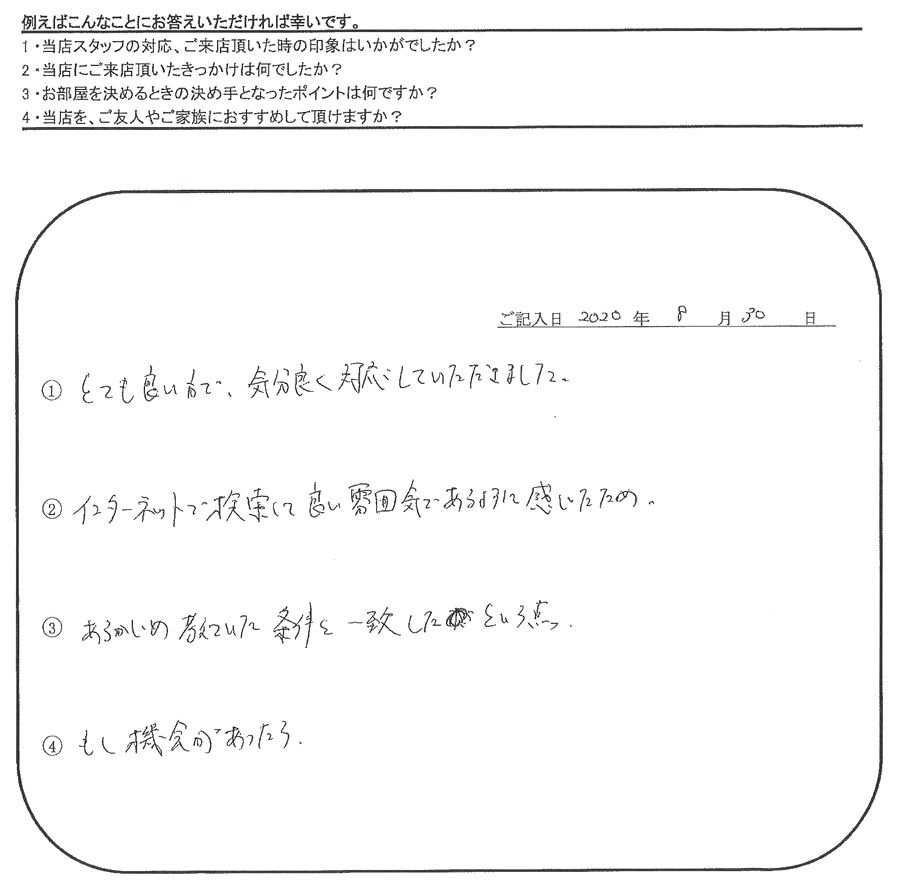 例えばこんなことにお答えいただければ幸いです。
1・当店スタッフの対応、ご来店頂いた時の印象はいかがでしたか？
2・当店にご来店頂いたきっかけは何でしたか？
3・お部屋を決めるときの決め手となったポイントは何ですか？
4・当店を、ご友人やご家族におすすめして頂けますか？
ご記入日 2020 年 8 月 30 日
① とても良い方で、気分良く対応していただきました。
② インターネットで検索して良い雰囲気であるように感じたため。
③ あらかじめ考えていた条件と一致したという点。
④ もし機会があったら.